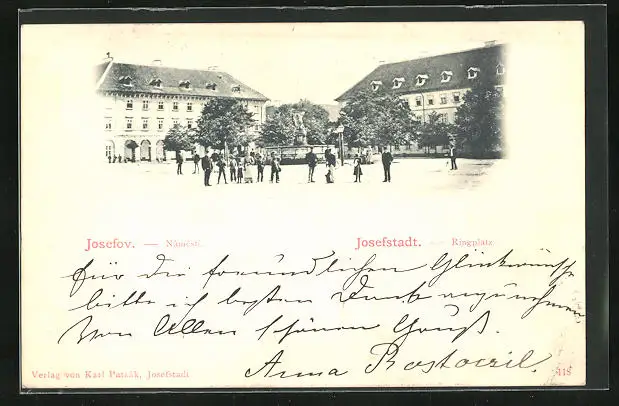 Josefov. — Náměstí.
Josefstadt. — Ringplatz.
für die freundlichen Glückwünsche
bitte ich besten Dank anzunehmen.
Von Allen schönen Gruß.
Anna
Verlag von Karl Patzák, Josefstadt
118